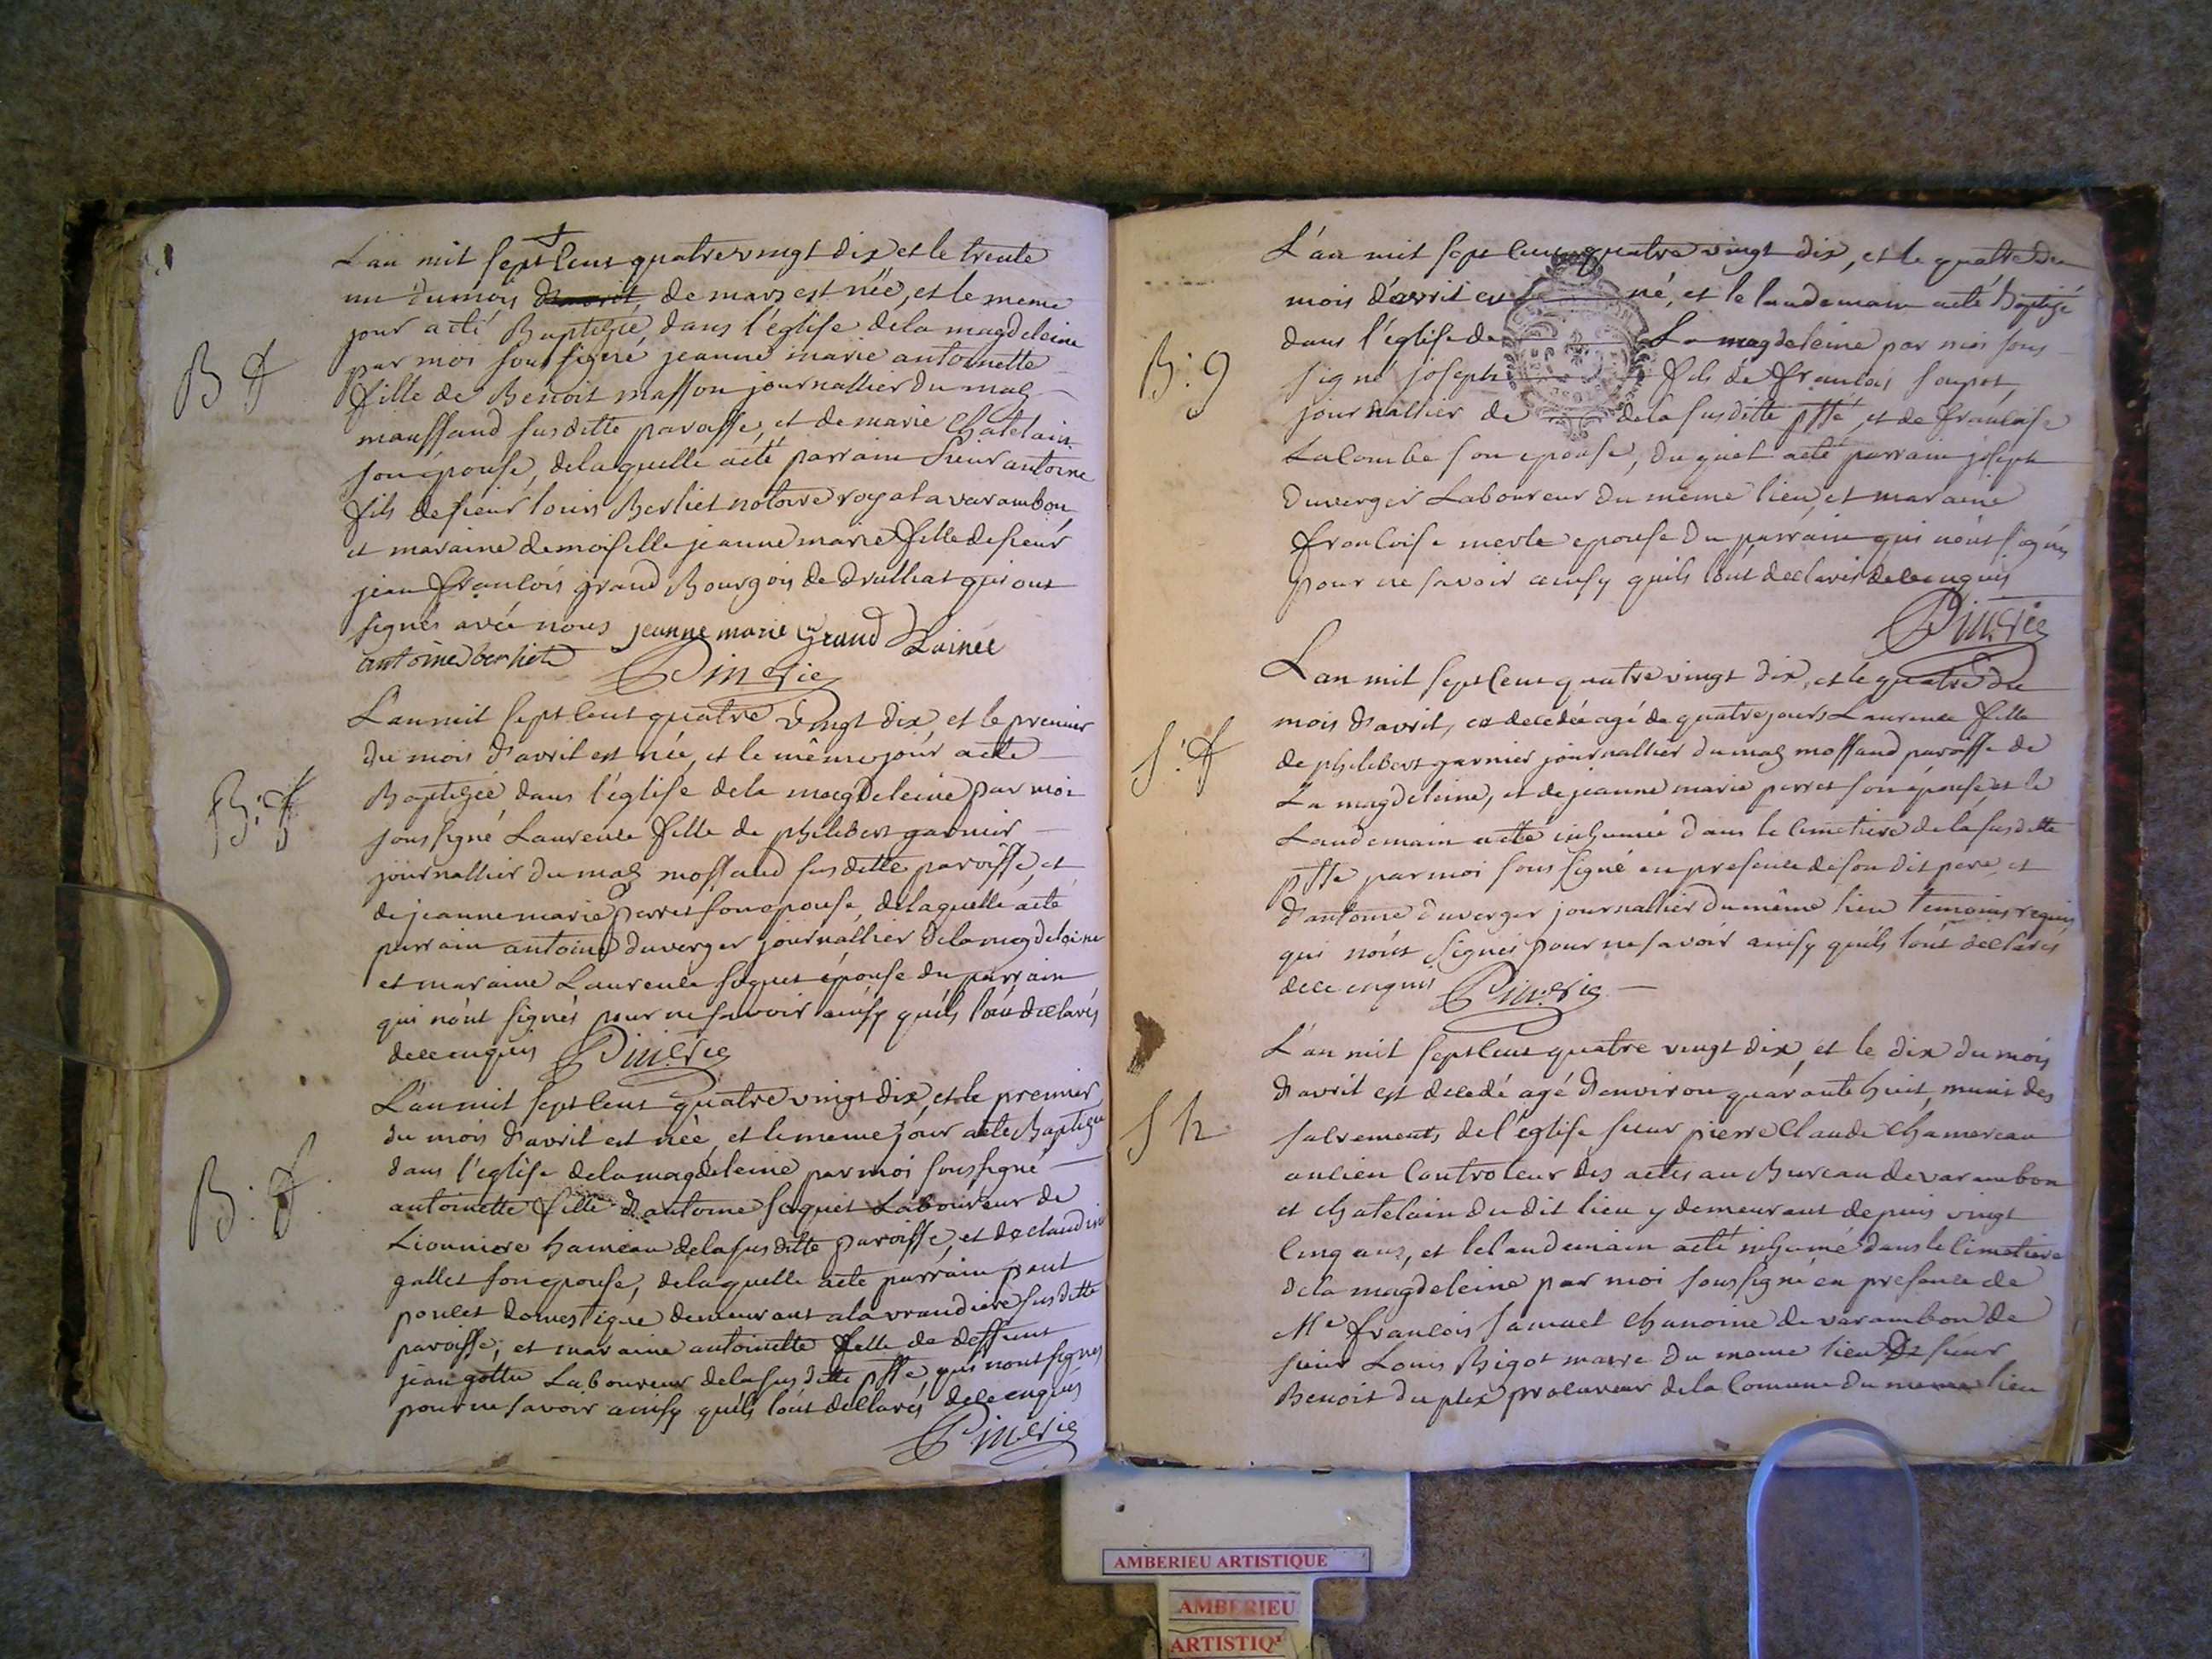 L'an mil sept cent quatre vingt dix et le trente
un du mois d'avril de mars est née, et le meme
jour a été Baptizée, dans l'église de la magdeleine
par moi soussigné jeanne marie antoinette
B f
fille de Benoit masson journallier du mas
mauffand susditte paroisse, et de marie Chatelain
son épouse, de laquelle a été parrain Sieur antoine
fils de sieur louis Berliet notaire royal a varambon
et maraine demoiselle jeanne marie fille de sieur
jean françois grand Bourgois de druillat qui ont
signés avec nous jeanne marie Grand Lainée
antoine berliet Pinerie
L'an mil sept cent quatre vingt dix et le premier
du mois d'avril est née, et le même jour a été
Baptizée dans l'église de la magdeleine par moi
B: f
soussigné Laurence fille de philibert garnier
journallier du mas moffand susditte paroisse, et
de jeanne marie perret son epouse, de laquelle a été
parrain antoine duverger journallier de la magdeleine
et maraine Laurence soquet épouse du parrain
qui n'ont signés pour ne savoir ainsy quils l'ont declarés
de ce enquis Pinerie
L'an mil sept cent quatre vingt dix, et le premier
du mois d'avril est née, et le meme jour a été Baptizée
dans l'église de la magdeleine par moi soussigné
B. f.
antoinette fille d'antoine soquet Laboureur de
Lionniere hameau de la susditte paroisse, et de claudine
gallet son epouse, de laquelle a été parrain paul
poncet domestique demeurant a la vrandiere susditte
paroisse, et maraine antoinette fille de deffunt
jean gottu Laboureur de la susditte psse, qui n'ont signés
pour ne savoir ainsy quils l'ont declarés de ce enquis
Pinerie
L'an mil sept cent quatre vingt dix, et le quatre du
mois d'avril est né, et le landemain a été Baptizé
dans l'église de La magdeleine par moi sous
B: g
signé joseph fils de françois
journallier de de la susditte psse, et de françoise
Lacombe son epouse, du quel a été parrain joseph
Duverger Laboureur du même lieu, et maraine
françoise merle epouse du parrain qui n'ont signés
pour ne savoir ainsy quils l'ont declarés de ce enquis
Pinerie
L'an mil sept cent quatre vingt dix, et le quatre du
mois d'avril, est decedée agé de quatre jours Laurence fille
S: f
de philibert garnier journallier du mas moffand paroisse de
La magdeleine, et de jeanne marie perret son épouse et le
Landemain a été inhumée dans le cimetiere de la susditte
psse par moi sous signé en presence de son dit pere, et
d'antoine duverger journallier du même lieu temoins requis
qui n'ont signés pour ne savoir ainsy quils l'ont declarés
de ce enquis Pinerie
L'an mil sept cent quatre vingt dix, et le dix du mois
d'avril est decedé agé d'environ quarante huit, munis des
S h
sacrements de l'église sieur pierre Claude Chamereau
ancien Controleur des actes au Bureau de varambon
et chatelain du dit lieu y demeurant depuis vingt
cinq ans, et le landemain a été inhumé dans le cimetiere
de la magdeleine par moi soussigné en presence de
Me françois samuel chanoine de varambon de
sieur Louis Bigot maire du meme lieu de sieur
Benoit duplex procureur de la Comune du meme lieu
AMBERIEU ARTISTIQUE
AMBERIEU
ARTISTIQ